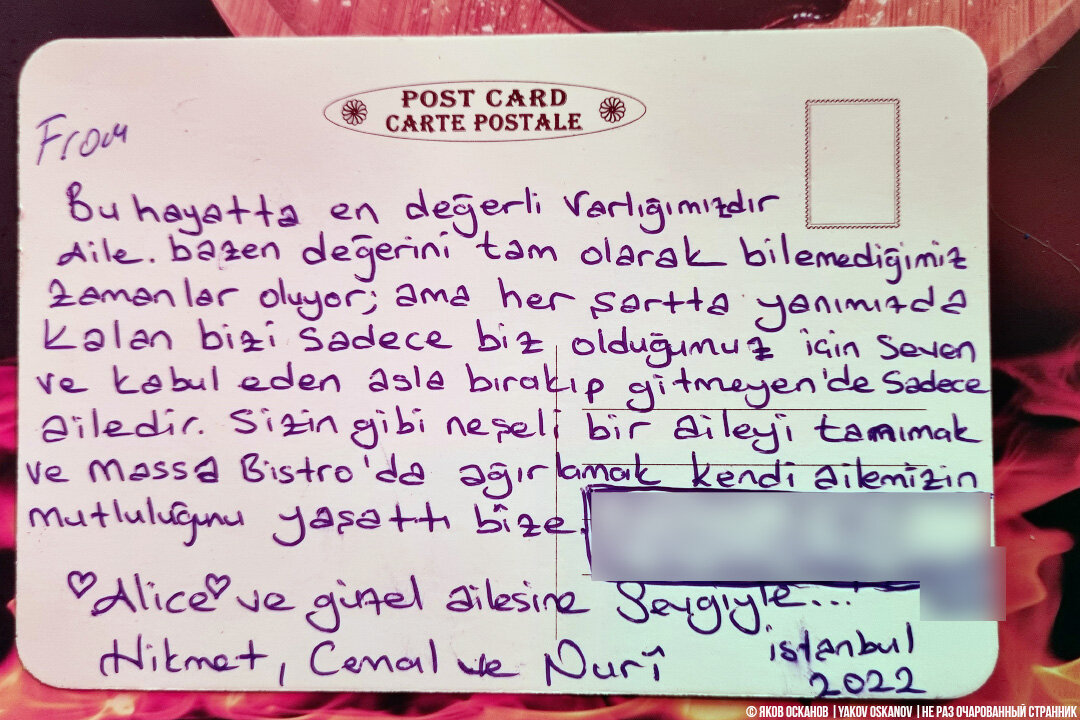 POST CARD
CARTE POSTALE
From
Bu hayatta en değerli varlığımızdır
Aile. bazen değerini tam olarak bilemediğimiz
zamanlar oluyor; ama her şartta yanımızda
kalan bizi sadece biz olduğumuz için seven
ve kabul eden asla bırakıp gitmeyen'de sadece
ailedir. Sizin gibi neşeli bir aileyi tanımak
ve Massa Bistro'da ağırlamak kendi ailemizin
mutluluğunu yaşattı bize.
♡Alice♡ ve güzel ailesine Sevgiyle...
Hikmet, Cemal ve Nurî
istanbul
2022
© ЯКОВ ОСКАНОВ | YAKOV OSKANOV | НЕ РАЗ ОЧАРОВАННЫЙ СТРАННИК